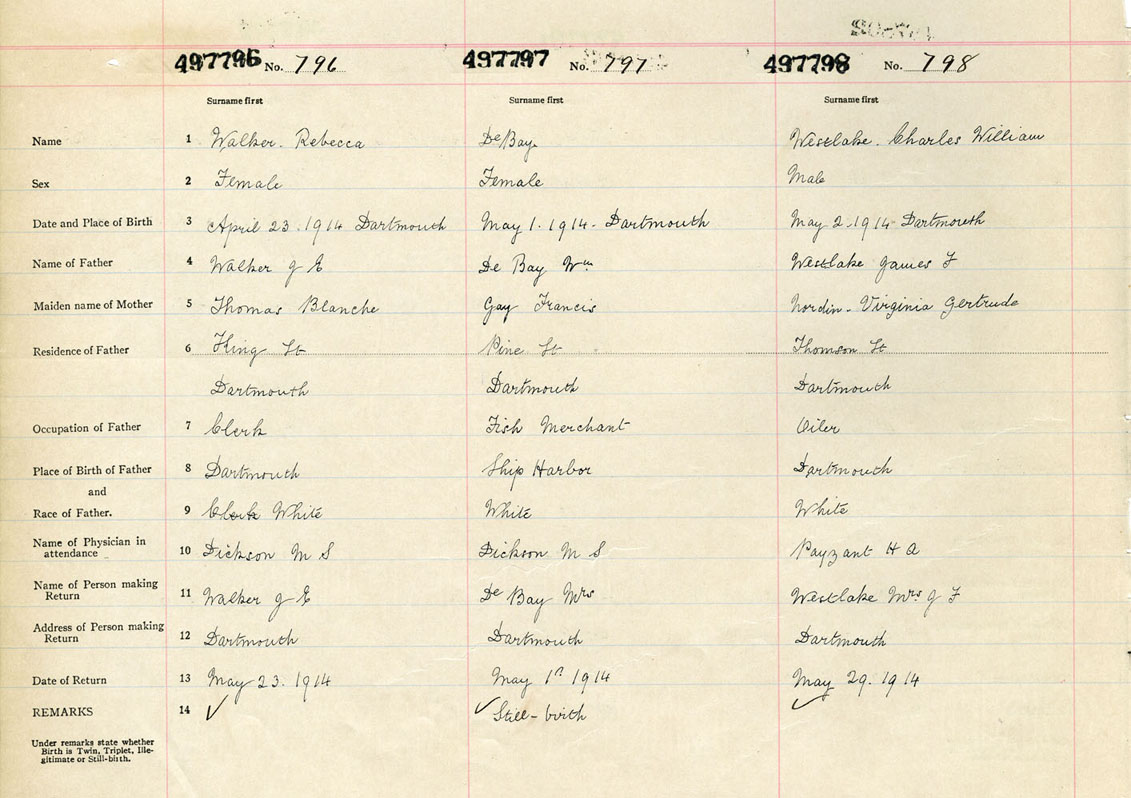 497796 No. 796 497797 No. 797 497798 No. 798
Surname first Surname first Surname first
Name 1 Walker. Rebecca De Bay Westlake. Charles William
Sex 2 Female Female Male
Date and Place of Birth 3 April 23. 1914 Dartmouth May 1. 1914 - Dartmouth May 2. 1914 Dartmouth
Name of Father 4 Walker J E De Bay Wm Westlake James F
Maiden name of Mother 5 Thomas Blanche Gay Francis Nordin. Virginia Gertrude
Residence of Father 6 King St Pine St Thomson St
Dartmouth Dartmouth Dartmouth
Occupation of Father 7 Clerk Fish Merchant Oiler
Place of Birth of Father 8 Dartmouth Ship Harbor Dartmouth
and
Race of Father. 9 Clerk White White White
Name of Physician in
attendance 10 Dickson M S Dickson M S Payzant H A
Name of Person making
Return 11 Walker J E De Bay Mrs Westlake Mrs J F
Address of Person making
Return 12 Dartmouth Dartmouth Dartmouth
Date of Return 13 May 23. 1914 May 1st 1914 May 29. 1914
REMARKS 14 ✓ ✓ Still-birth ✓
Under remarks state whether
Birth is Twin, Triplet, Ille-
gitimate or Still-birth.